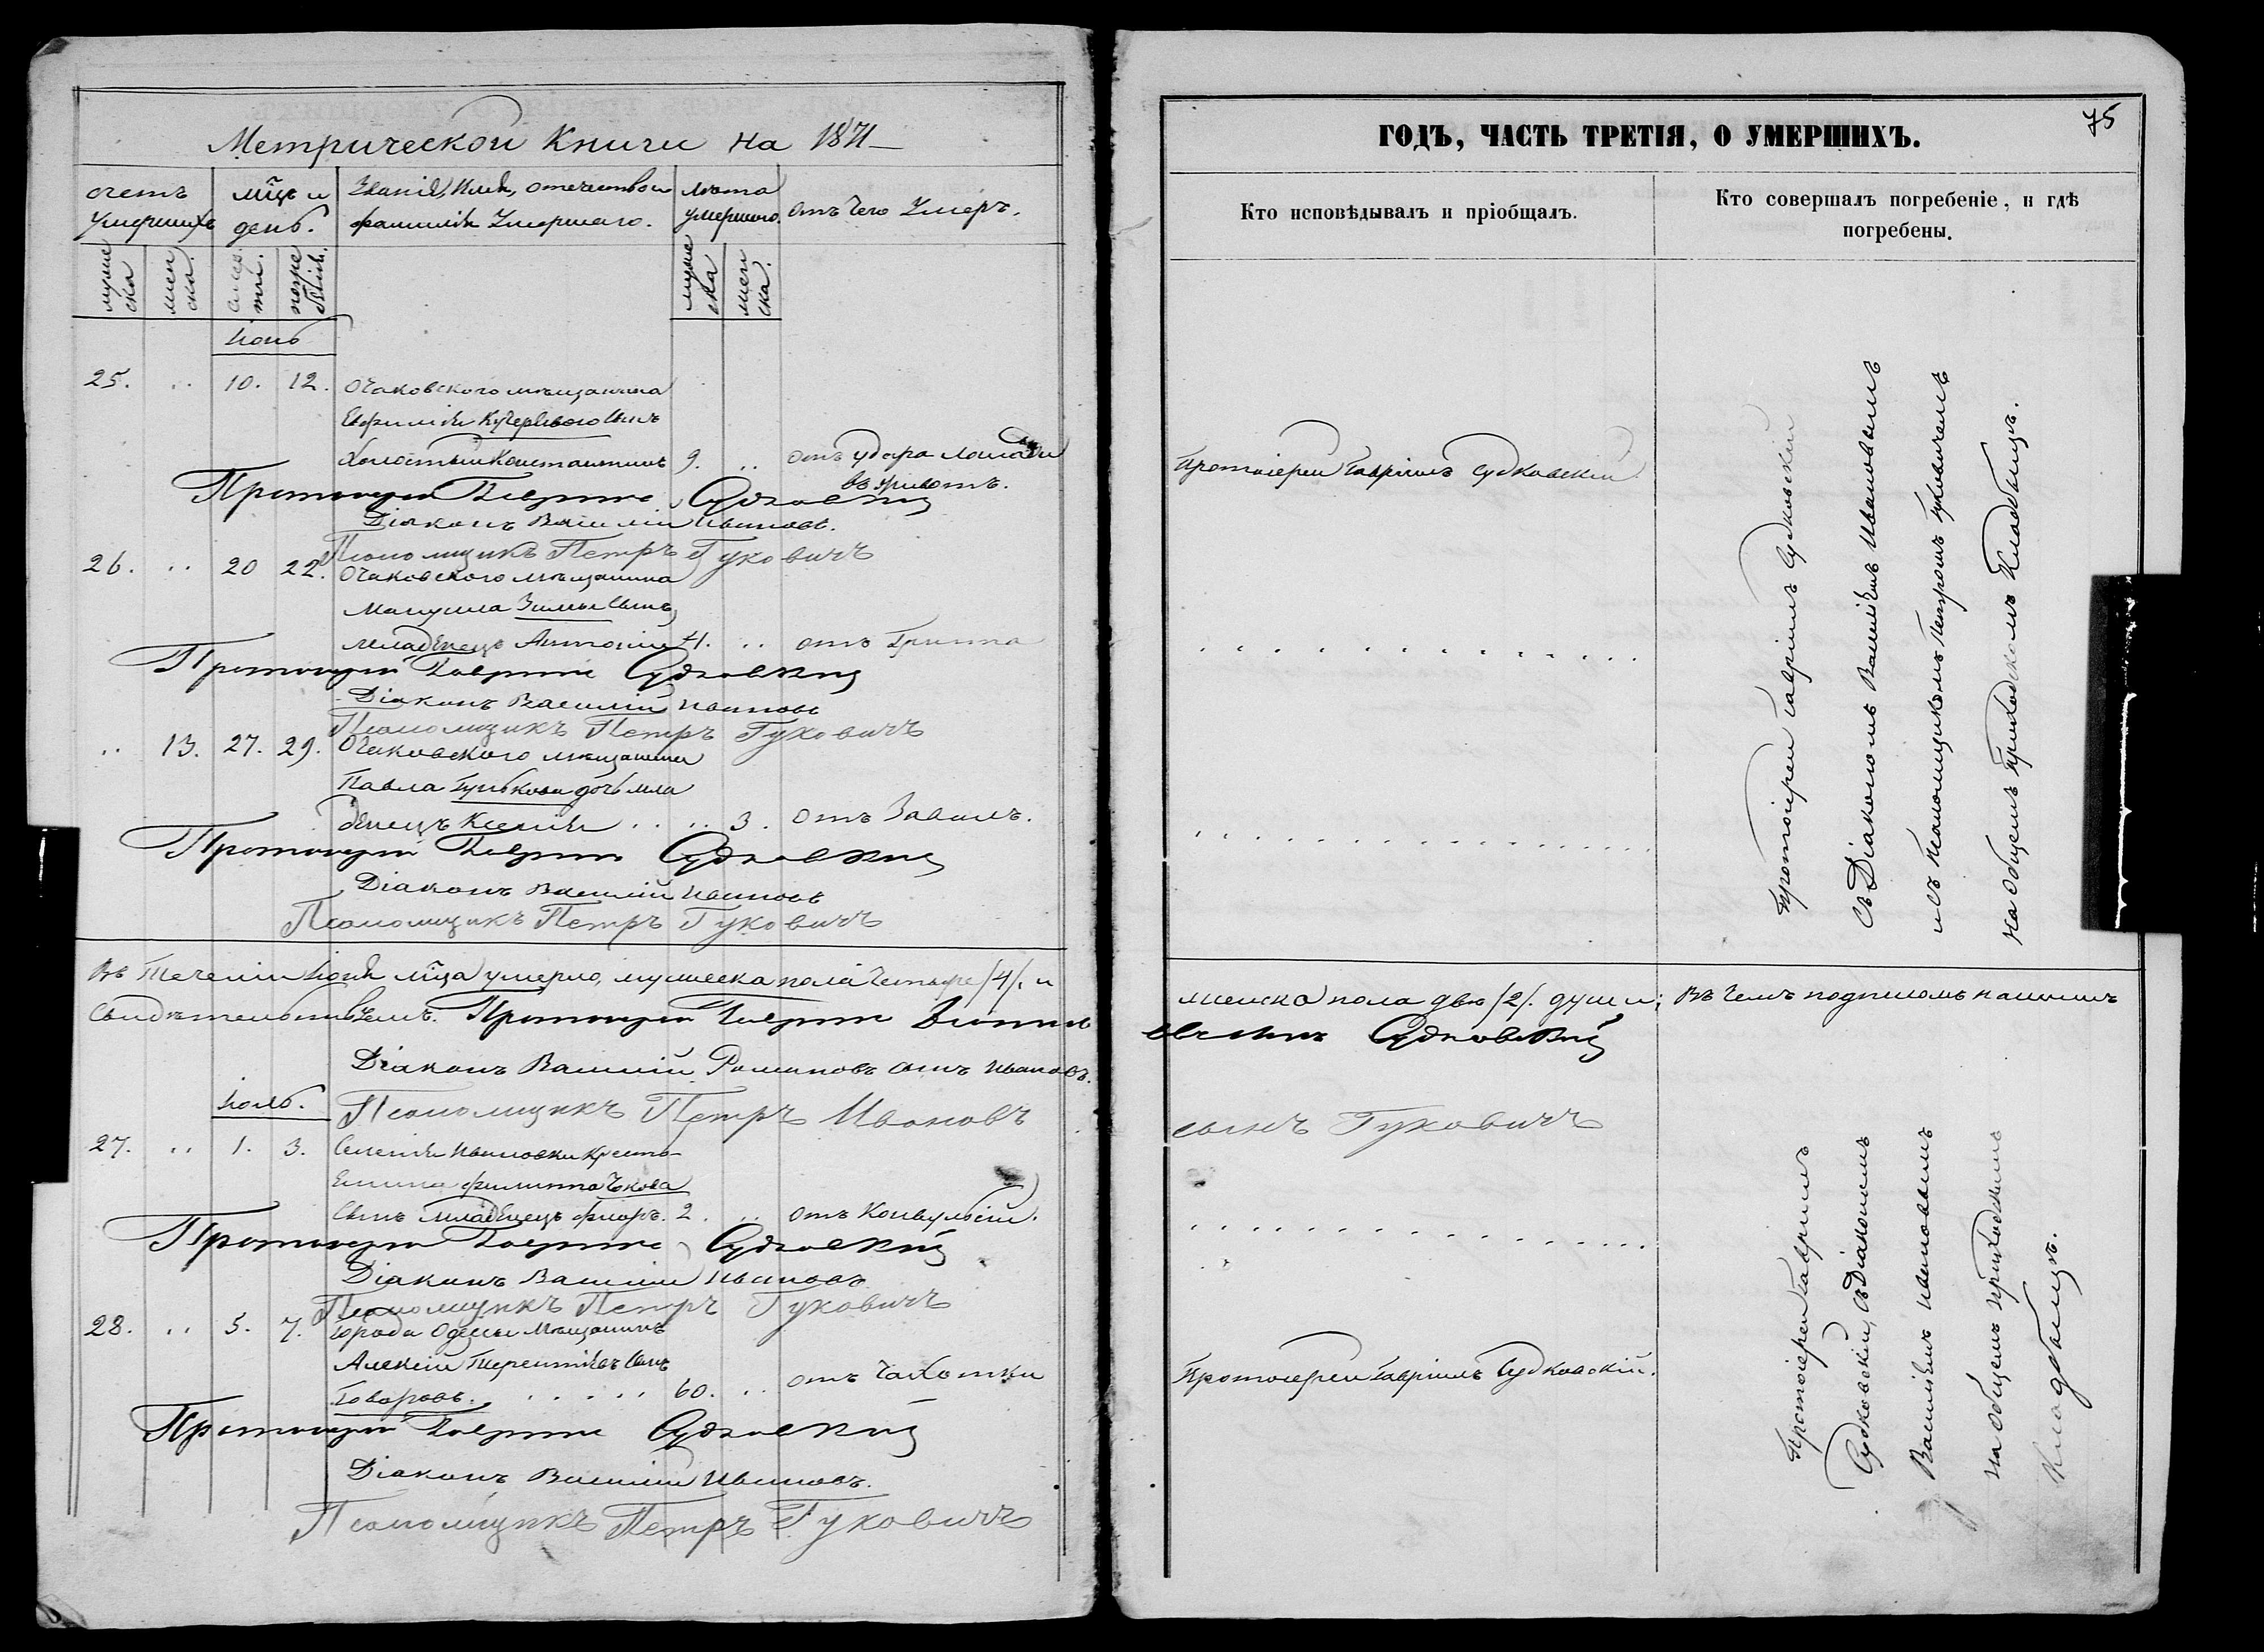 Метрической Книги на 1871
счетъ умершихъ
мужеска
женска
мц̃ъ и день.
смерти.
погребенія.
Званіе, Имя, отечество и фамилія Умершаго.
Лѣта умершаго.
мужеска
женска.
Отъ чего Умеръ.
Іюнь
25. .. 10. 12. Очаковскаго мѣщанина
Сынъ
холостый Константинъ 9. .. отъ удара лошади
въ животъ.
Протоіерей Гавріилъ Судковскій
Діаконъ Василій Ивановъ.
Псаломщикъ Петръ Гуковичъ
26. .. 20 22. Очаковскаго мѣщанина
Мануила Зимы Сынъ
младенецъ Антоній 1. .. отъ Гриппа
Протоіерей Гавріилъ Судковскій
Діаконъ Василій Ивановъ
Псаломщикъ Петръ Гуковичъ
.. 13. 27. 29. Очаковскаго мѣщанина
Павла дочь мла
денецъ Ксенія .. 3. отъ Завалъ.
Протоіерей Гавріилъ Судковскій
Діаконъ Василій Ивановъ
Псаломщикъ Петръ Гуковичъ
Въ теченіи Іюня мц̃а умерло, мужеска пола четыре /4/. и
свидѣтельствуемъ. Протоіерей Гавріилъ
Діаконъ Василій Романовъ сынъ Ивановъ.
Іюль.
Псаломщикъ Петръ Ивановъ
27. .. 1. 3. Селенія Ивановки Кресть
янина Филиппа
Сынъ младенецъ 2. .. отъ Конвульсіи.
Протоіерей Гавріилъ Судковскій
Діаконъ Василій Ивановъ
Псаломщикъ Петръ Гуковичъ
28. .. 5. 7. города Одессы Мѣщанинъ
Алексій Терентіевъ Сынъ
Говоровъ. 60. .. отъ Чахотки
Протоіерей Гавріилъ Судковскій
Діаконъ Василій Ивановъ.
Псаломщикъ Петръ Гуковичъ
75
ГОДЪ, ЧАСТЬ ТРЕТІЯ, О УМЕРШИХЪ.
Кто исповѣдывалъ и пріобщалъ.
Кто совершалъ погребеніе, и гдѣ
погребены.
Протоіерей Гавріилъ Судковскій
Протоіерей Гавріилъ Судковскій
съ Діакономъ Василіемъ Ивановымъ
и съ Псаломщикомъ Петромъ Гуковичемъ
на общемъ приходскомъ Кладбищѣ.
женска пола двѣ /2/. души; Въ чемъ подписомъ нашимъ
сынъ Судковскій
сынъ Гуковичъ
Протоіерей Гавріилъ Судковскій.
Протоіерей Гавріилъ
Судковскій, съ Діакономъ
Василіемъ Ивановымъ
на общемъ приходскомъ
Кладбищѣ.